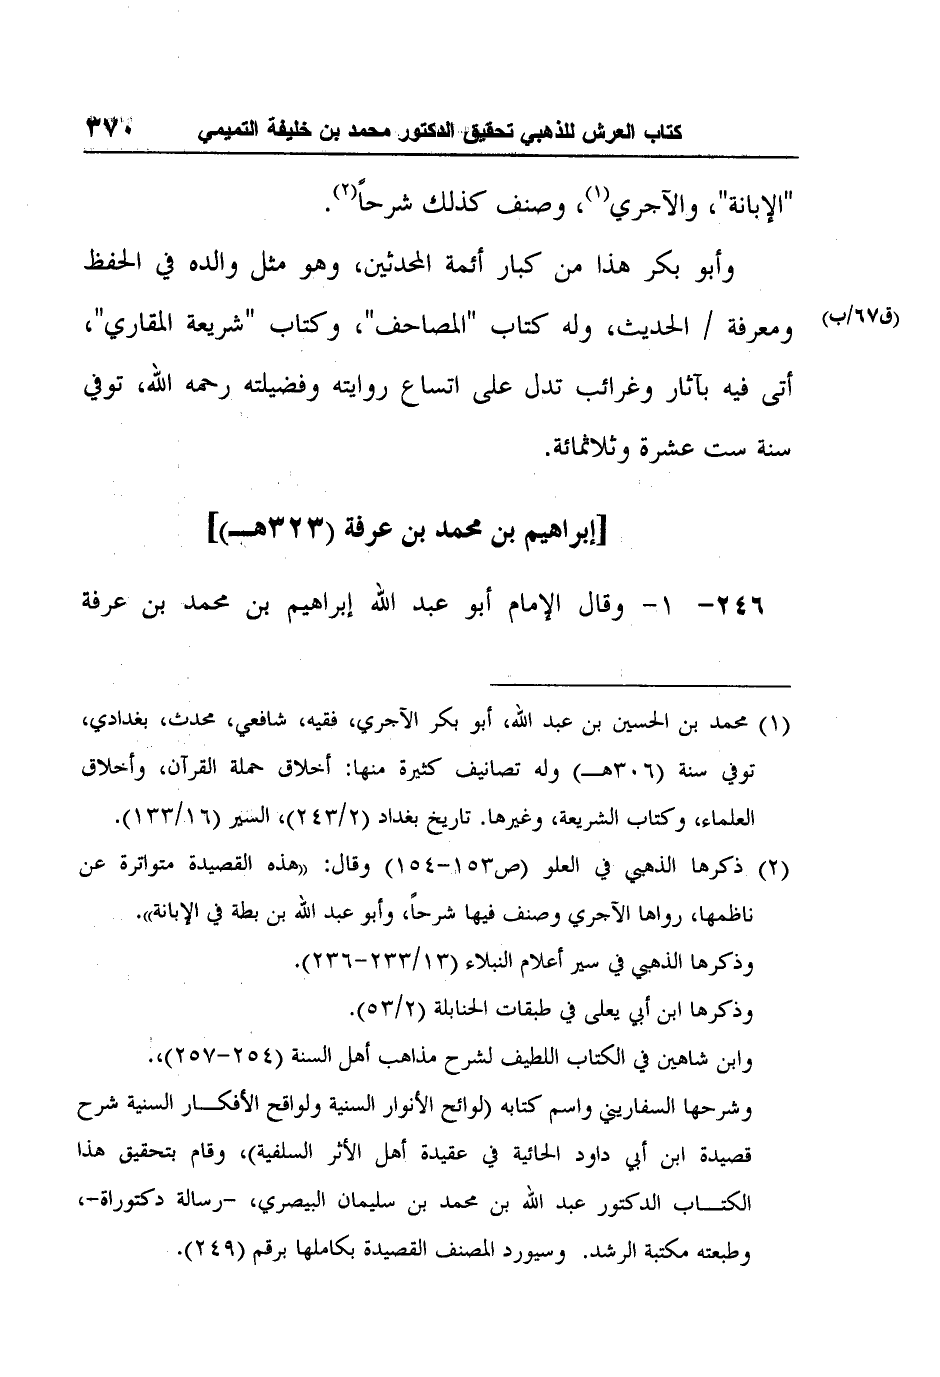 كتاب العرش للذهبي تحقيق الدكتور محمد بن خليفة التميمي ٣٧٠
"الإبانة"، والآجري(١)، وصنف كذلك شرحاً(٢).
وأبو بكر هذا من كبار أئمة المحدثين، وهو مثل والده في الحفظ
ومعرفة / الحديث، وله كتاب "المصاحف"، وكتاب "شريعة المقاري"، (ق٦٧/ب)
أتى فيه بآثار وغرائب تدل على اتساع روايته وفضيلته رحمه الله، توفي
سنة ست عشرة وثلاثمائة.
[إبراهيم بن محمد بن عرفة (٣٢٣هـ)]
٢٤٦- ١- وقال الإمام أبو عبد الله إبراهيم بن محمد بن عرفة
(١) محمد بن الحسين بن عبد الله، أبو بكر الآجري، فقيه، شافعي، محدث، بغدادي،
توفي سنة (٣٠٦هـ) وله تصانيف كثيرة منها: أخلاق حملة القرآن، وأخلاق
العلماء، وكتاب الشريعة، وغيرها. تاريخ بغداد (٢٤٣/٢)، السير (١٣٣/١٦).
(٢) ذكرها الذهبي في العلو (ص١٥٣-١٥٤) وقال: «هذه القصيدة متواترة عن
ناظمها، رواها الآجري وصنف فيها شرحاً، وأبو عبد الله بن بطة في الإبانة».
وذكرها الذهبي في سير أعلام النبلاء (٢٣٣/١٣-٢٣٦).
وذكرها ابن أبي يعلى في طبقات الحنابلة (٥٣/٢).
وابن شاهين في الكتاب اللطيف لشرح مذاهب أهل السنة (٢٥٤-٢٥٧)،.
وشرحها السفاريني واسم كتابه (لوائح الأنوار السنية ولواقح الأفكار السنية شرح
قصيدة ابن أبي داود الحائية في عقيدة أهل الأثر السلفية)، وقام بتحقيق هذا
الكتاب الدكتور عبد الله بن محمد بن سليمان البيصري، -رسالة دكتوراة-،
وطبعته مكتبة الرشد. وسيورد المصنف القصيدة بكاملها برقم (٢٤٩).